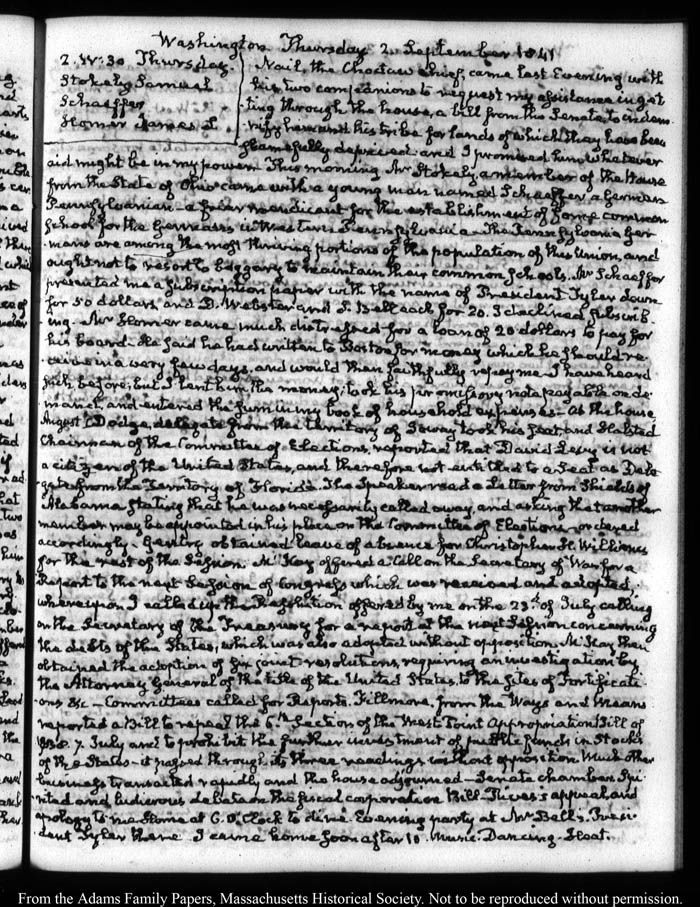 Washington Thursday 2. September 1841
2. IV:30 Thursday.
Stokely Samuel
Schaeffer
Homer James L.
Nail, the Choctaw Chief, came last Evening with
his two companions to request my assistance in get
ting through the house, a bill from the Senate, to indem
nify him and his tribe for lands of which they have been
shamefully deprived and I promised him whatever
aid might be in my power. This morning Mr Stokely, a member of the House
from the State of Ohio came with a young man named Schaeffer a German
Pennsylvanian a friar mendicant for the establishment of some common
School for the Germans in Western Pennsylvania. The Pennsylvania Ger-
mans are among the most thriving portions of the population of this Union, and
ought not to resort to beggary to maintain their common Schools. Mr Schaeffer
presented me a subscription paper with the name of President Tyler down
for 50 dollars, and D. Webster and J. Bell each for 20. I declined subscrib-
ing. Mr Homer came much distressed for a loan of 20 dollars to pay for
his board. He said he had written to Boston for money which he should re-
ceive in a very few days, and would then faithfully repay me. I have heard
such before; but I lent him the money; took his promissory note payable on de-
mand, and entered the sum in my book of household expenses. At the house
Augustus Dodge, delegate from the Territory of Iowa took his seat, and Halsted
Chairman of the Committee of Elections, reported that David Levy is not
a citizen of the United States, and therefore not entitled to a seat as Dele
gate from the Territory of Florida. The Speaker read a Letter from Shields of
Alabama stating that he was necessarily called away, and asking that another
member may be appointed in his place on the Committee of Elections ordered
accordingly. Gentry obtained leave of absence for Christopher H. Williams
for the rest of the Session. McKay offered a call on the Secretary of War for a
Report to the next Session of Congress which was received and adopted;
whereupon I called up the Resolution offered by me on the 23d of July calling
on the Secretary of the Treasury for a report at the next Session concerning
the debts of the States, which was also adopted without opposition. McKay then
obtained the adoption of six joint resolutions, requiring an investigation by
the Attorney General of the title of the United States, to the sites of Fortificati
ons &c. Committees called for Reports. Fillmore, from the Ways and Means
reported a Bill to repeal the 6th Section of the West Point Appropriation Bill of
1838. 7 July and to prohibit the further investment of public funds in Stocks
of the States it passed through its three readings without opposition. Much other
business transacted rapidly and the house adjourned Senate chamber. Spi
rited and ludicrous debate on the fiscal corporation Bill. Rives's appeal and
apology to me. Home at 6. O'Clock to dine. Evening party at Mr Bell's. Presi
dent Tyler there. I came home soon after 10. Music. Dancing.
From the Adams Family Papers, Massachusetts Historical Society. Not to be reproduced without permission.